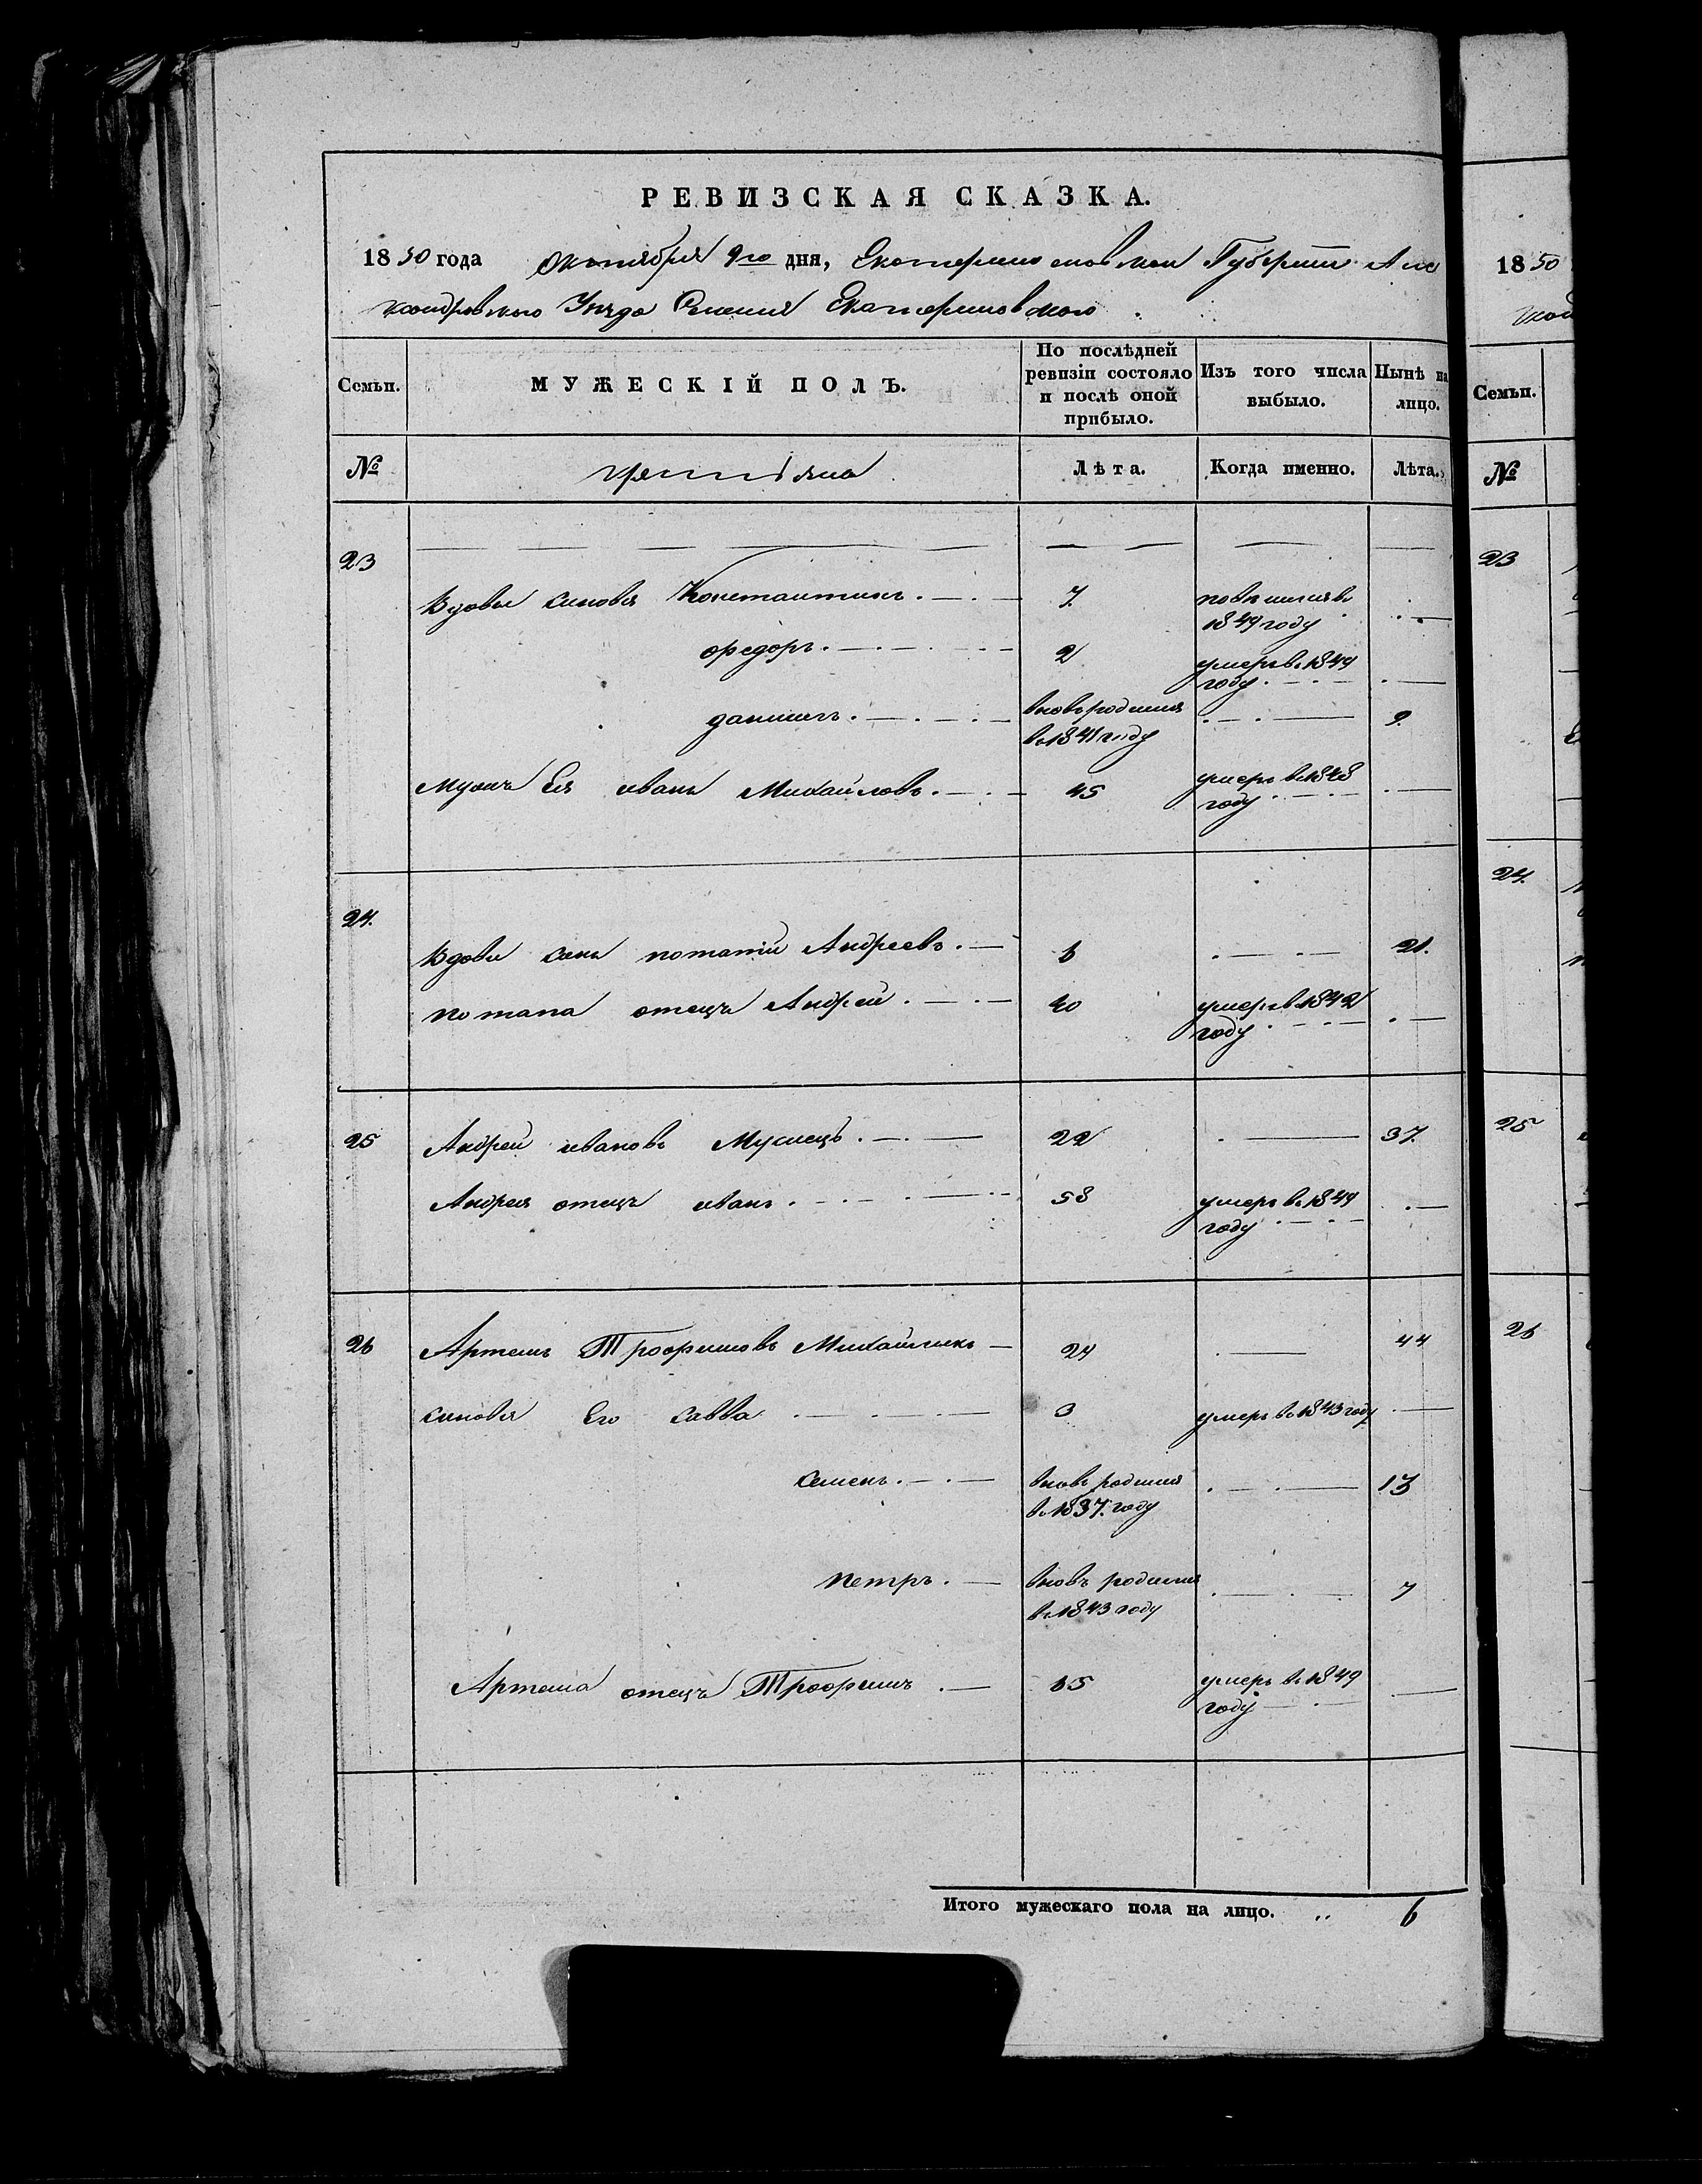 РЕВИЗСКАЯ СКАЗКА.
1850 года октября 9го дня, Екатеринославской Губернiи Алек
сандровскаго Уезда Селенiя Екатериновского
Семьи. МУЖЕСКІЙ ПОЛЪ. По послѣдней ревизіи состояло и послѣ оной прибыло. Изъ того числа выбыло. Нынѣ на лицо.
№ Лѣта. Когда именно. Лѣта.
23
Вдовы сыновья Константинъ 7
1849 году
федоръ 2 умеръ в 1849
году
даниилъ вновь родился 9
в 1841 году
мужъ Ея иванъ Михайловъ 45 умеръ в 1848
году
24.
Вдовы сынъ потапiй Андреевъ 6 21.
потапа отецъ Андрей 40 умеръ в 1842
году
25 Андрей ивановъ 22 37.
Андрея отецъ иванъ 58 умеръ в 1849
году
26 Артемъ Трофимовъ Михайликъ 24 44
сыновья Его савва 3 умеръ в 1843 году
семенъ вновь родился 13
в 1837. году
петръ вновь родился 7
в 1843 году
Артема отецъ Трофимъ 65 умеръ в 1849
году
Итого мужескаго пола на лицо. 6
1850
Семьи.
№
23
24.
25
26